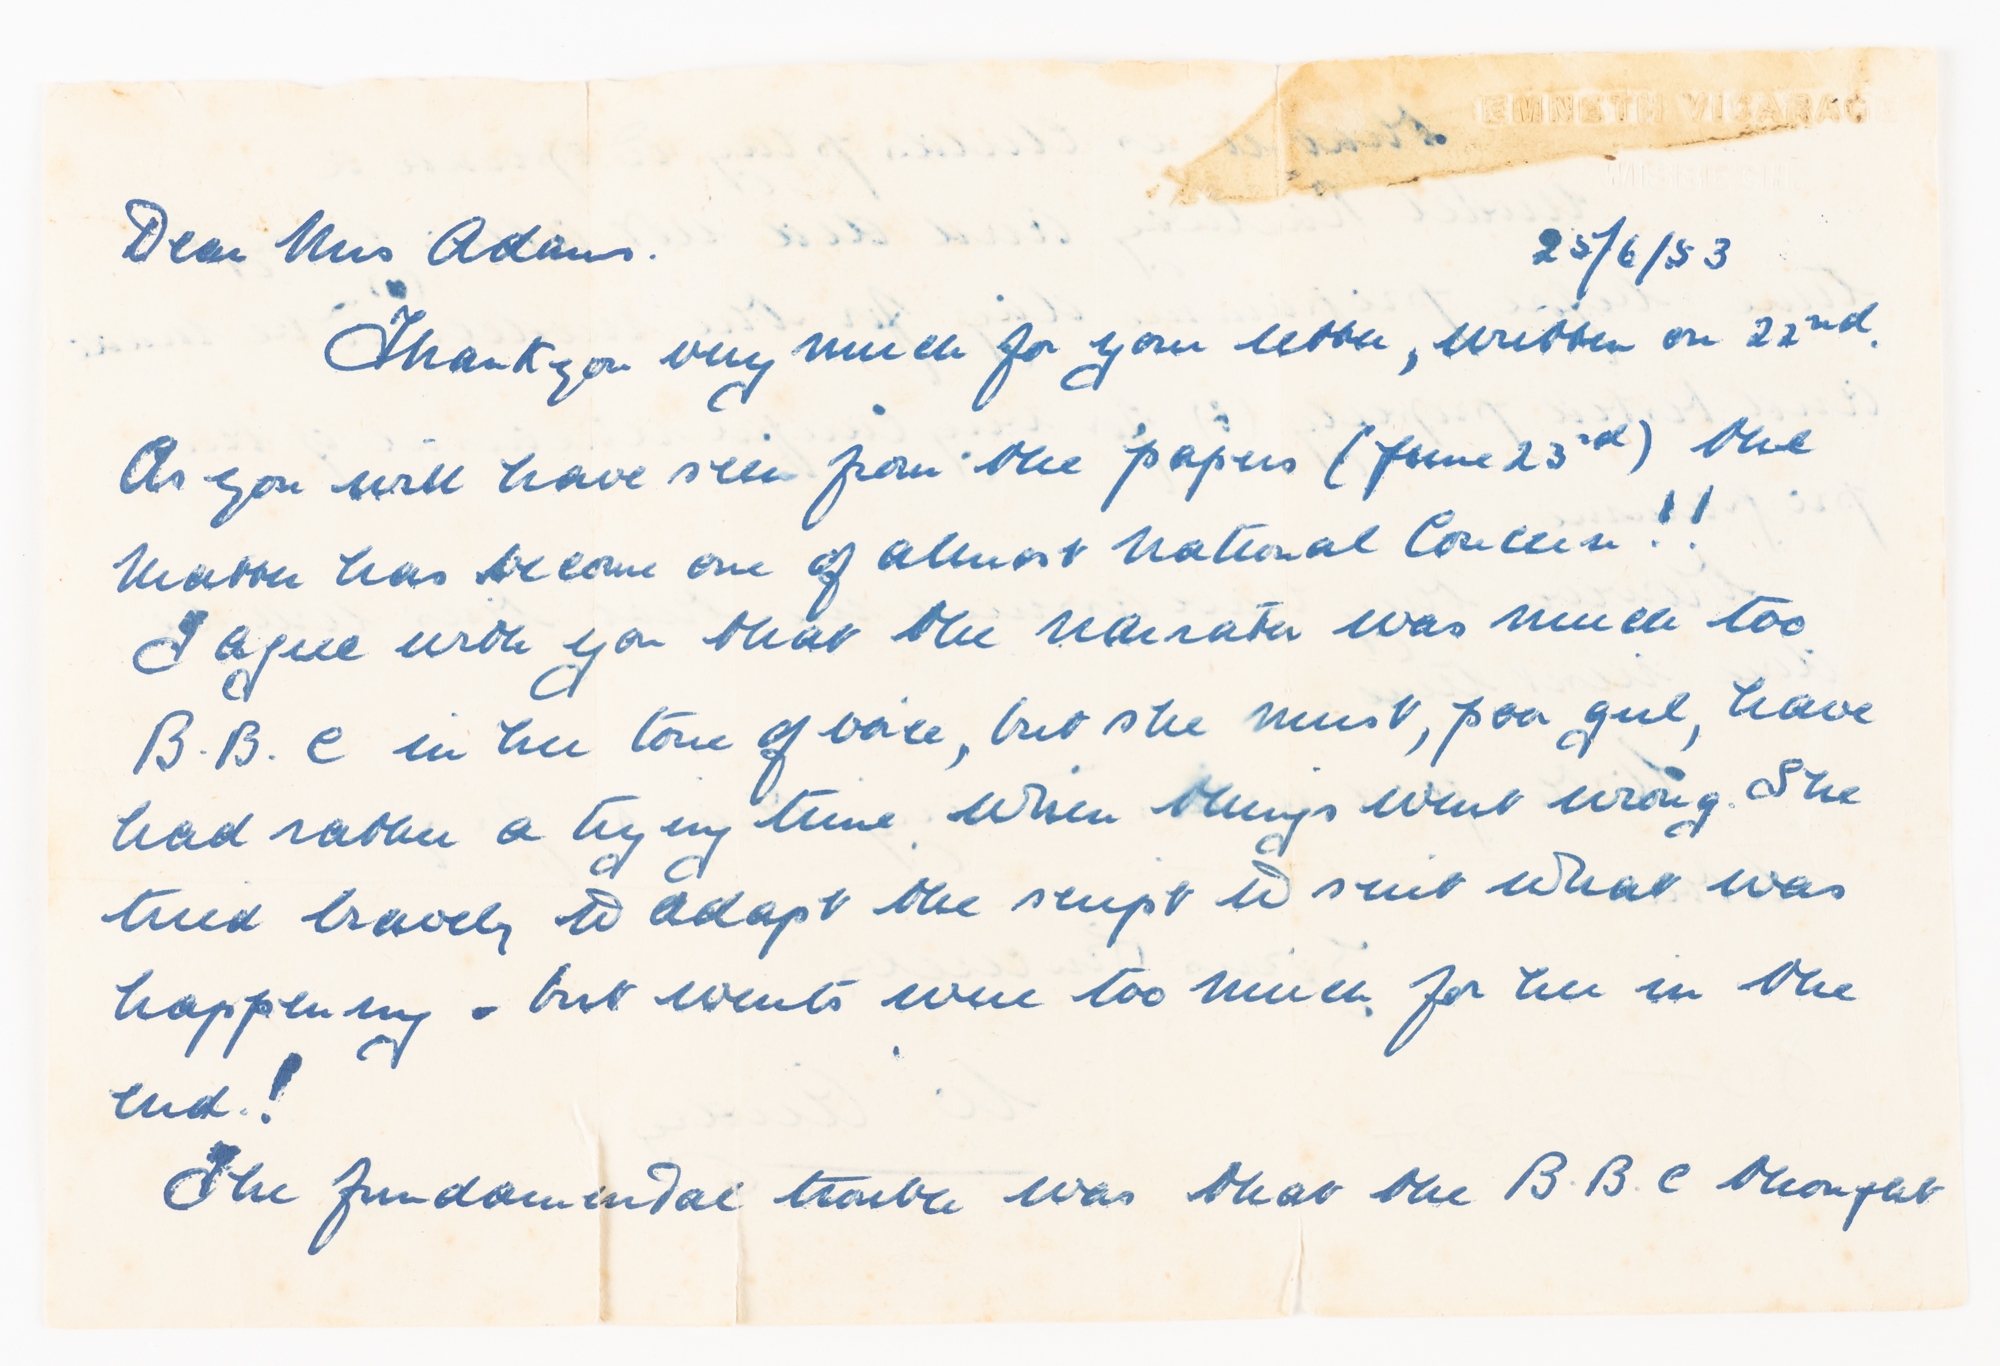 EMNETH VICARAGE
WISBECH
Dear Mrs Adams.
25/6/53
Thank you very much for your letter, written on 22nd.
As you will have seen from the papers (June 23rd) the
matter has become one of almost National Concern!!
I agree with you that the narrator was much too
B.B.C in her tone of voice, but she must, poor girl, have
had rather a trying time when things went wrong. She
tried bravely to adapt the script to suit what was
happening - but events were too much for her in the
end.!
The fundamental trouble was that the B.B.C thought